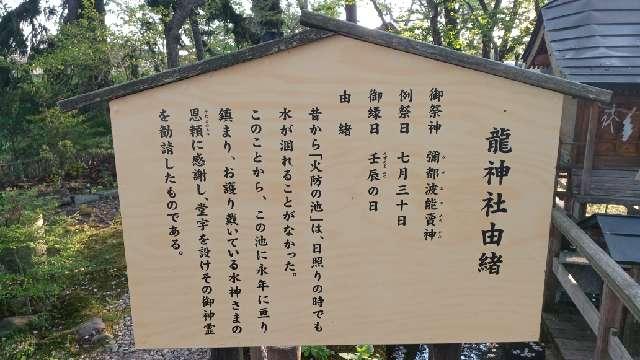 龍神社由緒
御祭神　彌都波能賣神
例祭日　七月三十日
御縁日　壬辰の日
由緒
昔から「火防の池」は、日照りの時でも
水が涸れることがなかった。
このことから、この池に永年に亘り
鎮まり、お護り戴いている水神さまの
恩頼に感謝し、堂宇を設けその御神霊
を勧請したものである。